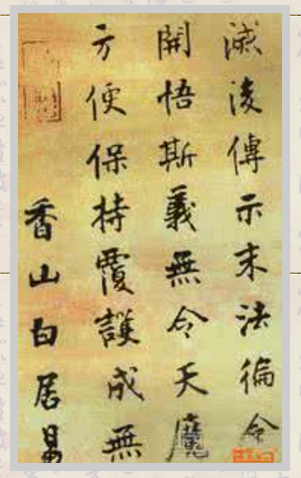 滅後傳示末法徧令
開悟斯義無令天魔
方便保持覆護成無
香山白居易